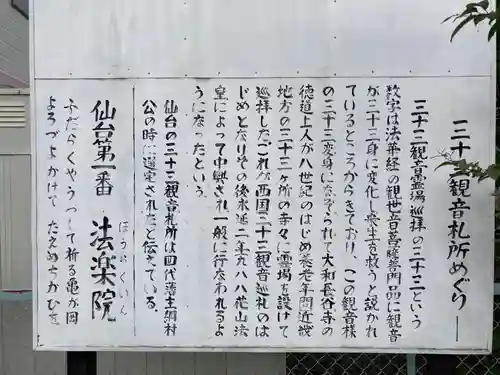 三十三観音札所めぐり―
三十三観音霊場巡拝の三十三という
数字は法華経の観世音菩薩普門品に観音
が三十三身に変化し衆生を救うと説かれ
ているところからきており、この観音様
の三十三変身になぞらられて大和長谷寺の
徳道上人が八世紀のはじめ養老年間近畿
地方の三十三ヶ所の寺々に霊場を設けて
巡拝したこれが西国三十三観音巡礼のは
じめとなりその後永延二年九八八花山法
皇によって中興され一般に行なわれるよ
うになったという。
仙台の三十三観音札所は四代藩主綱村
公の時に選定されたと伝えている。
仙台第一番 法楽院
ほうらくいん
ふだらくやうつして祈る亀が岡
よろづよかけて たえぬちかひを